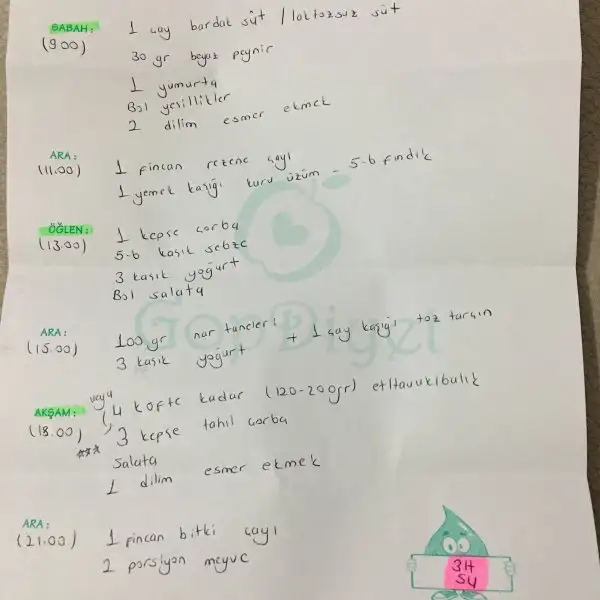 SABAH: 1 çay bardak süt / laktozsuz süt
(9.00)
30 gr beyaz peynir
1 yumurta
Bol yeşillikler
2 dilim esmer ekmek
ARA:
(11.00) 1 fincan rezene çayı
1 yemek kaşığı kuru üzüm - 5-6 fındık
ÖĞLEN:
(13.00) 1 kepçe çorba
5-6 kaşık sebze
3 kaşık yoğurt
Bol salata
GopDiyet
ARA:
(15.00) 100 gr nar taneleri + 1 çay kaşığı toz tarçın
3 kaşık yoğurt
AKŞAM: veya (4 köfte kadar (120-200gr) et/tavuk/balık
(18.00) 3 kepçe tahıl çorba
*** Salata
1 dilim esmer ekmek
ARA:
(21.00) 1 fincan bitki çayı
2 porsiyon meyve
3H
SU